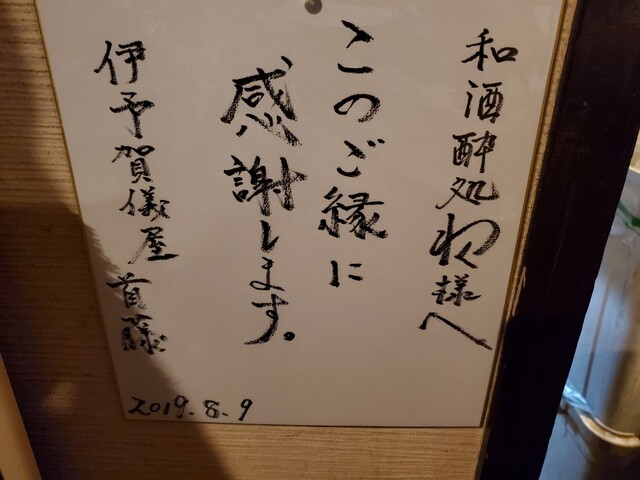 和酒酔処わ様へ
このご縁に
感謝します。
伊予賀儀屋 首藤
2019.8.9